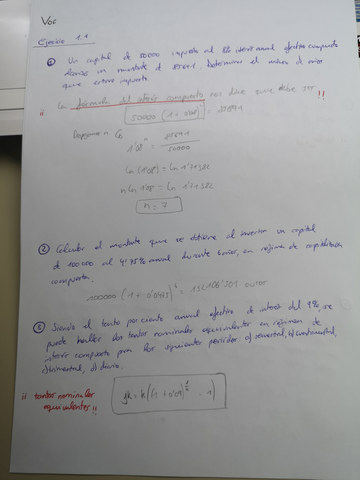 VOF
Ejercicio 1.1
① Un capital de 50000 impuesto al 8% interés anual efectivo compuesto
un montante de Determinar el número de años
que estuvo impuesto.
¡¡ La fórmula del interés compuesto nos dice que debe ser !!
50000 (1 + 0'08)ⁿ =
Despejamos
1'08ⁿ =
50000
ln (1'08)ⁿ = ln
n ln 1'08 = ln
n = 7
② Calcular el montante que se obtiene al invertir un capital
de 100000 al 4'75% anual durante años, en régimen de capitalización
compuesta.
100000 (1 + 0'0475) = euros
③ Siendo el tanto por ciento anual efectivo de interés del 9%, se
puede hallar los tantos nominales equivalentes en régimen de
interés compuesto para los siguientes periodos: a) semestral, b) cuatrimestral,
c) trimestral, d) diario.
¡¡ tantos nominales
equivalentes !!
jk = k ((1 + 0'09) - 1)